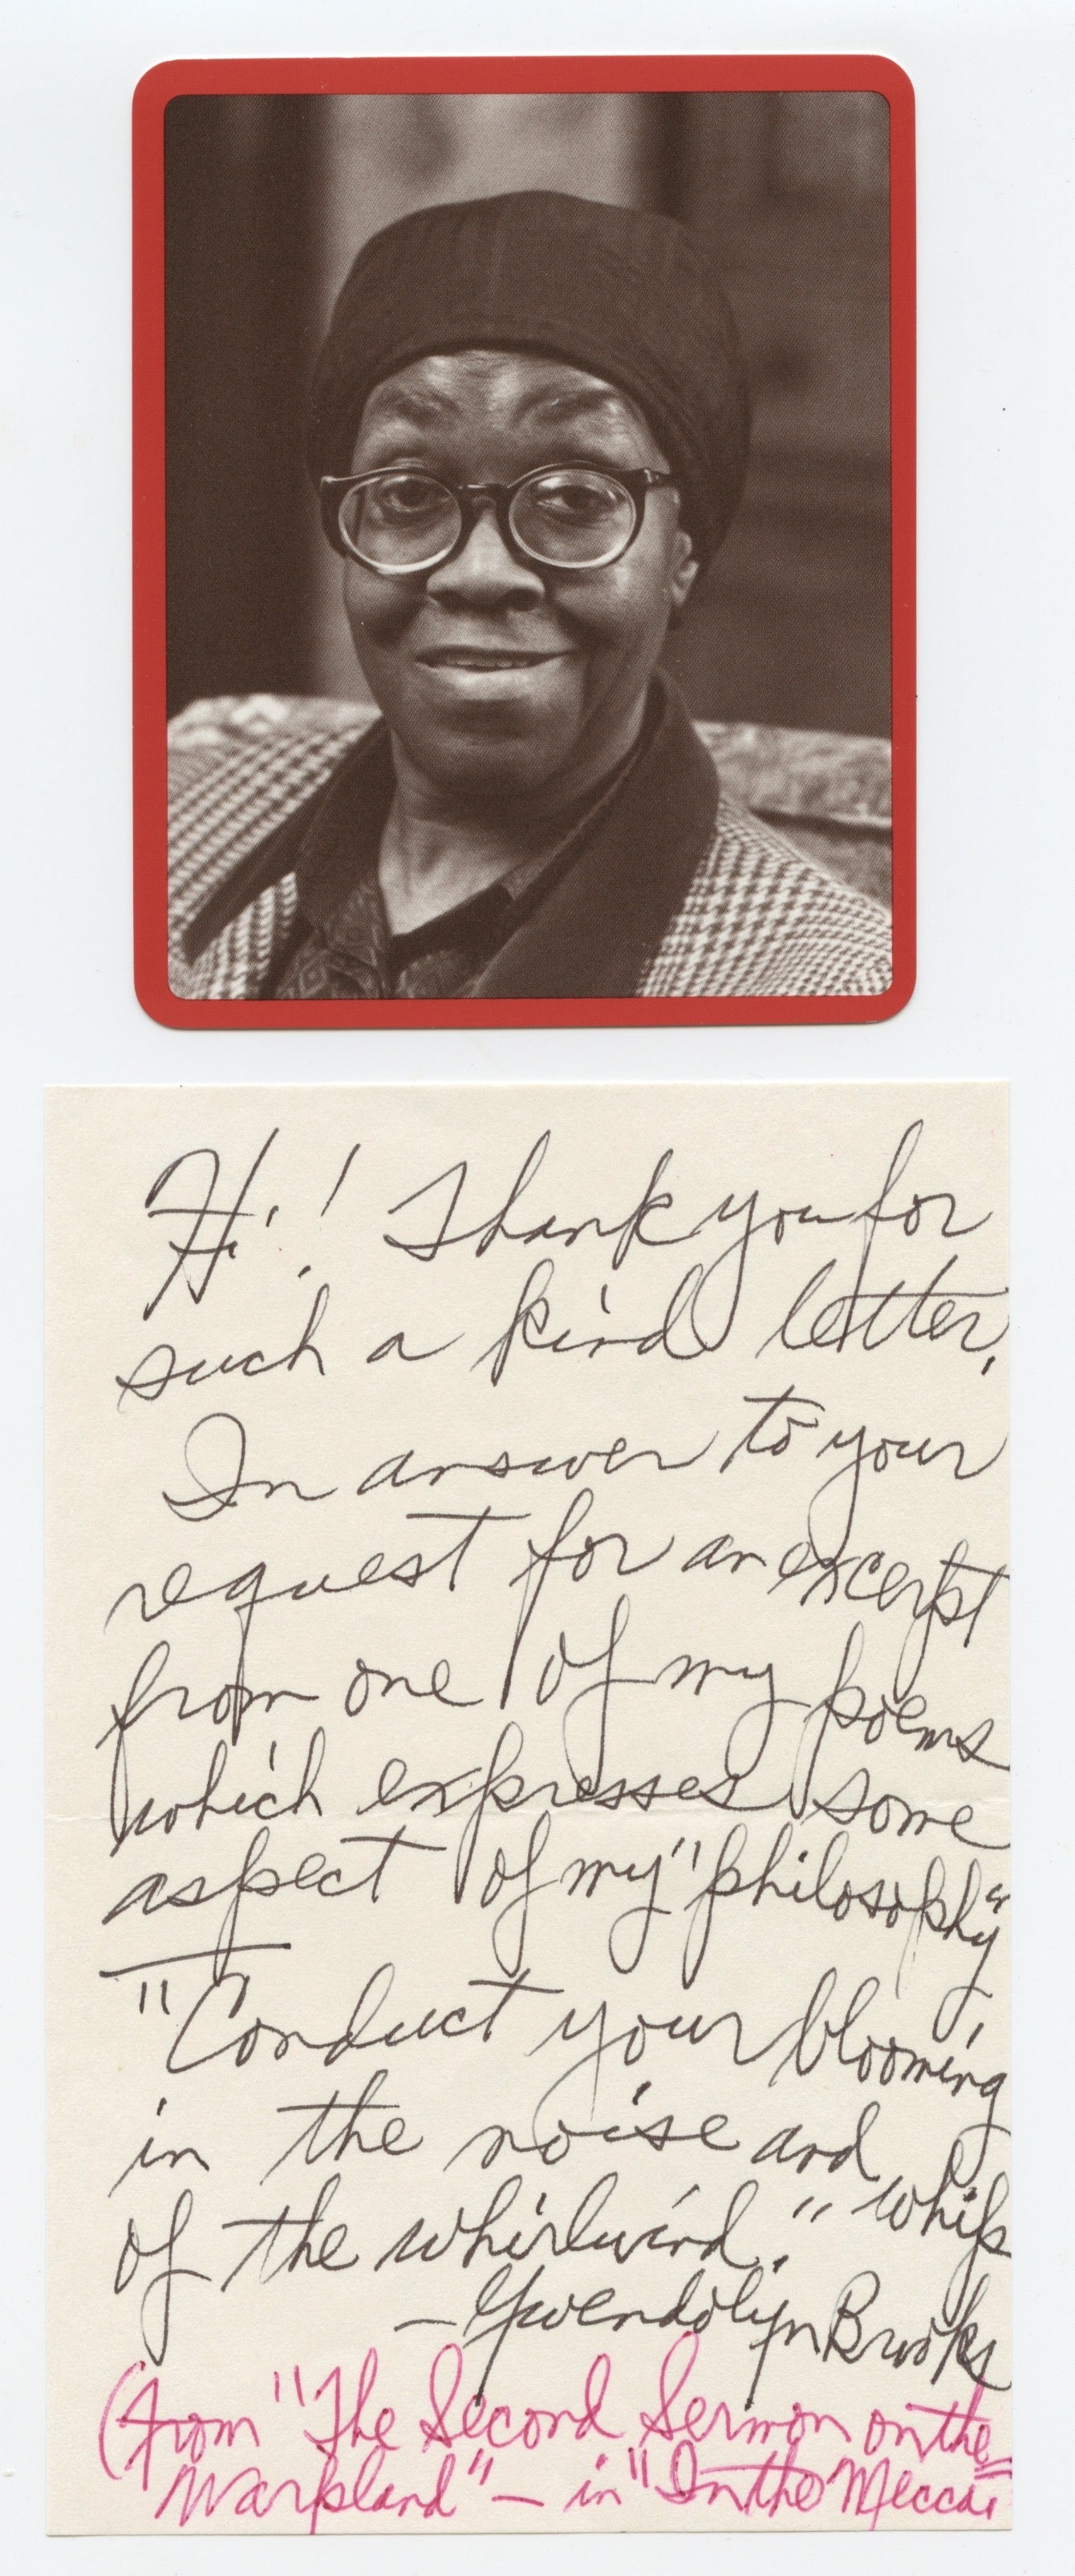 Hi! Thank you for
such a kind letter.
In answer to your
request for an excerpt
from one of my poems
which expresses some
aspect of my "philosophy"
—
"Conduct your blooming
in the noise and whip
of the whirlwind."
—Gwendolyn Brooks
(from "The Second Sermon on the
Warpland" — in "In the Mecca."